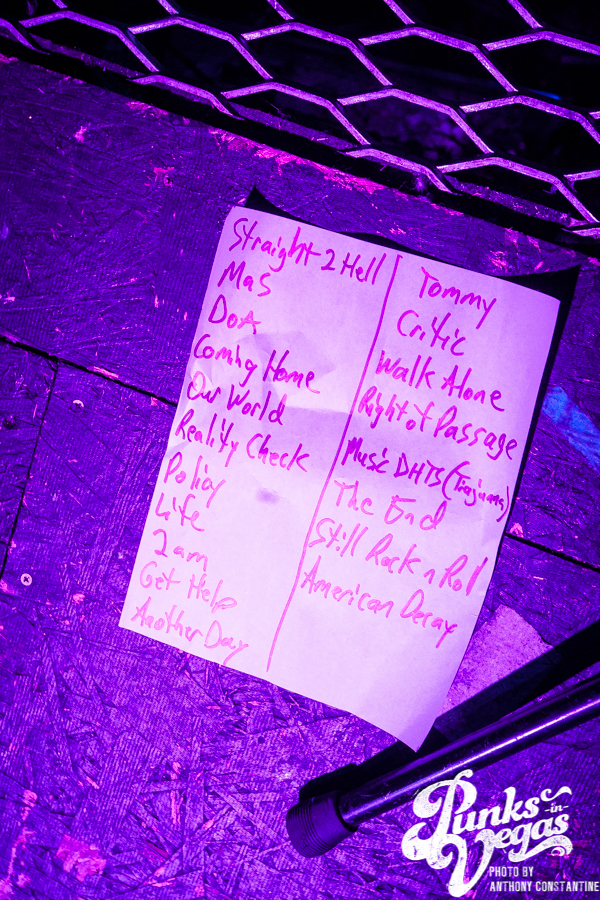 Straight 2 Hell
Mas
DOA
Coming Home
Our World
Reality Check
Policy
Life
2am
Get Help
Another Day
Tommy
Critic
Walk Alone
Right of Passage
Music DHTS (Tiajuana)
The End
Still Rock n Roll
American Decay
Punks
-in-
Vegas
PHOTO BY
ANTHONY CONSTANTINE